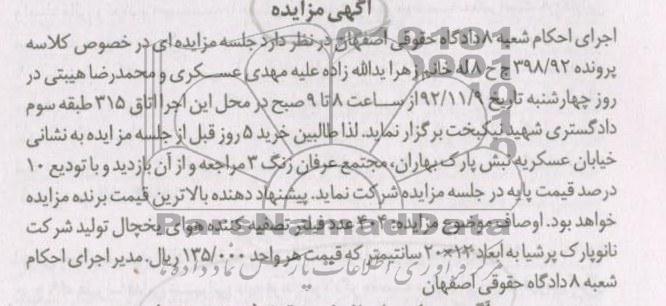 آگهی مزایده
اجرای احکام شعبه ۸ دادگاه حقوقی اصفهان در نظر دارد جلسه مزایده ای در خصوص کلاسه
پرونده ۳۹۸/۹۲ ج ح ۸ له خانم زهرا یدالله زاده علیه مهدی عسکری و محمدرضا هیبتی در
روز چهارشنبه تاریخ ۹۲/۱۱/۹ از ساعت ۸ تا ۹ صبح در محل این اجرا اتاق ۳۱۵ طبقه سوم
دادگستری شهید نیکبخت برگزار نماید. لذا طالبین خرید ۵ روز قبل از جلسه مزایده به نشانی
خیابان عسکریه نبش پارک بهاران، مجتمع عرفان زنگ ۳ مراجعه و از آن بازدید و با تودیع ۱۰
درصد قیمت پایه در جلسه مزایده شرکت نماید. پیشنهاد دهنده بالاترین قیمت برنده مزایده
خواهد بود. اوصاف موضوع مزایده: ۴۰۴ عدد فیلتر تصفیه کننده هوای یخچال تولید شرکت
نانوپارک پرشیا به ابعاد ۱۲×۲۰ سانتیمتر که قیمت هر واحد ۱۳۵/۰۰۰ ریال. مدیر اجرای احکام
شعبه ۸ دادگاه حقوقی اصفهان
ParsNamadData